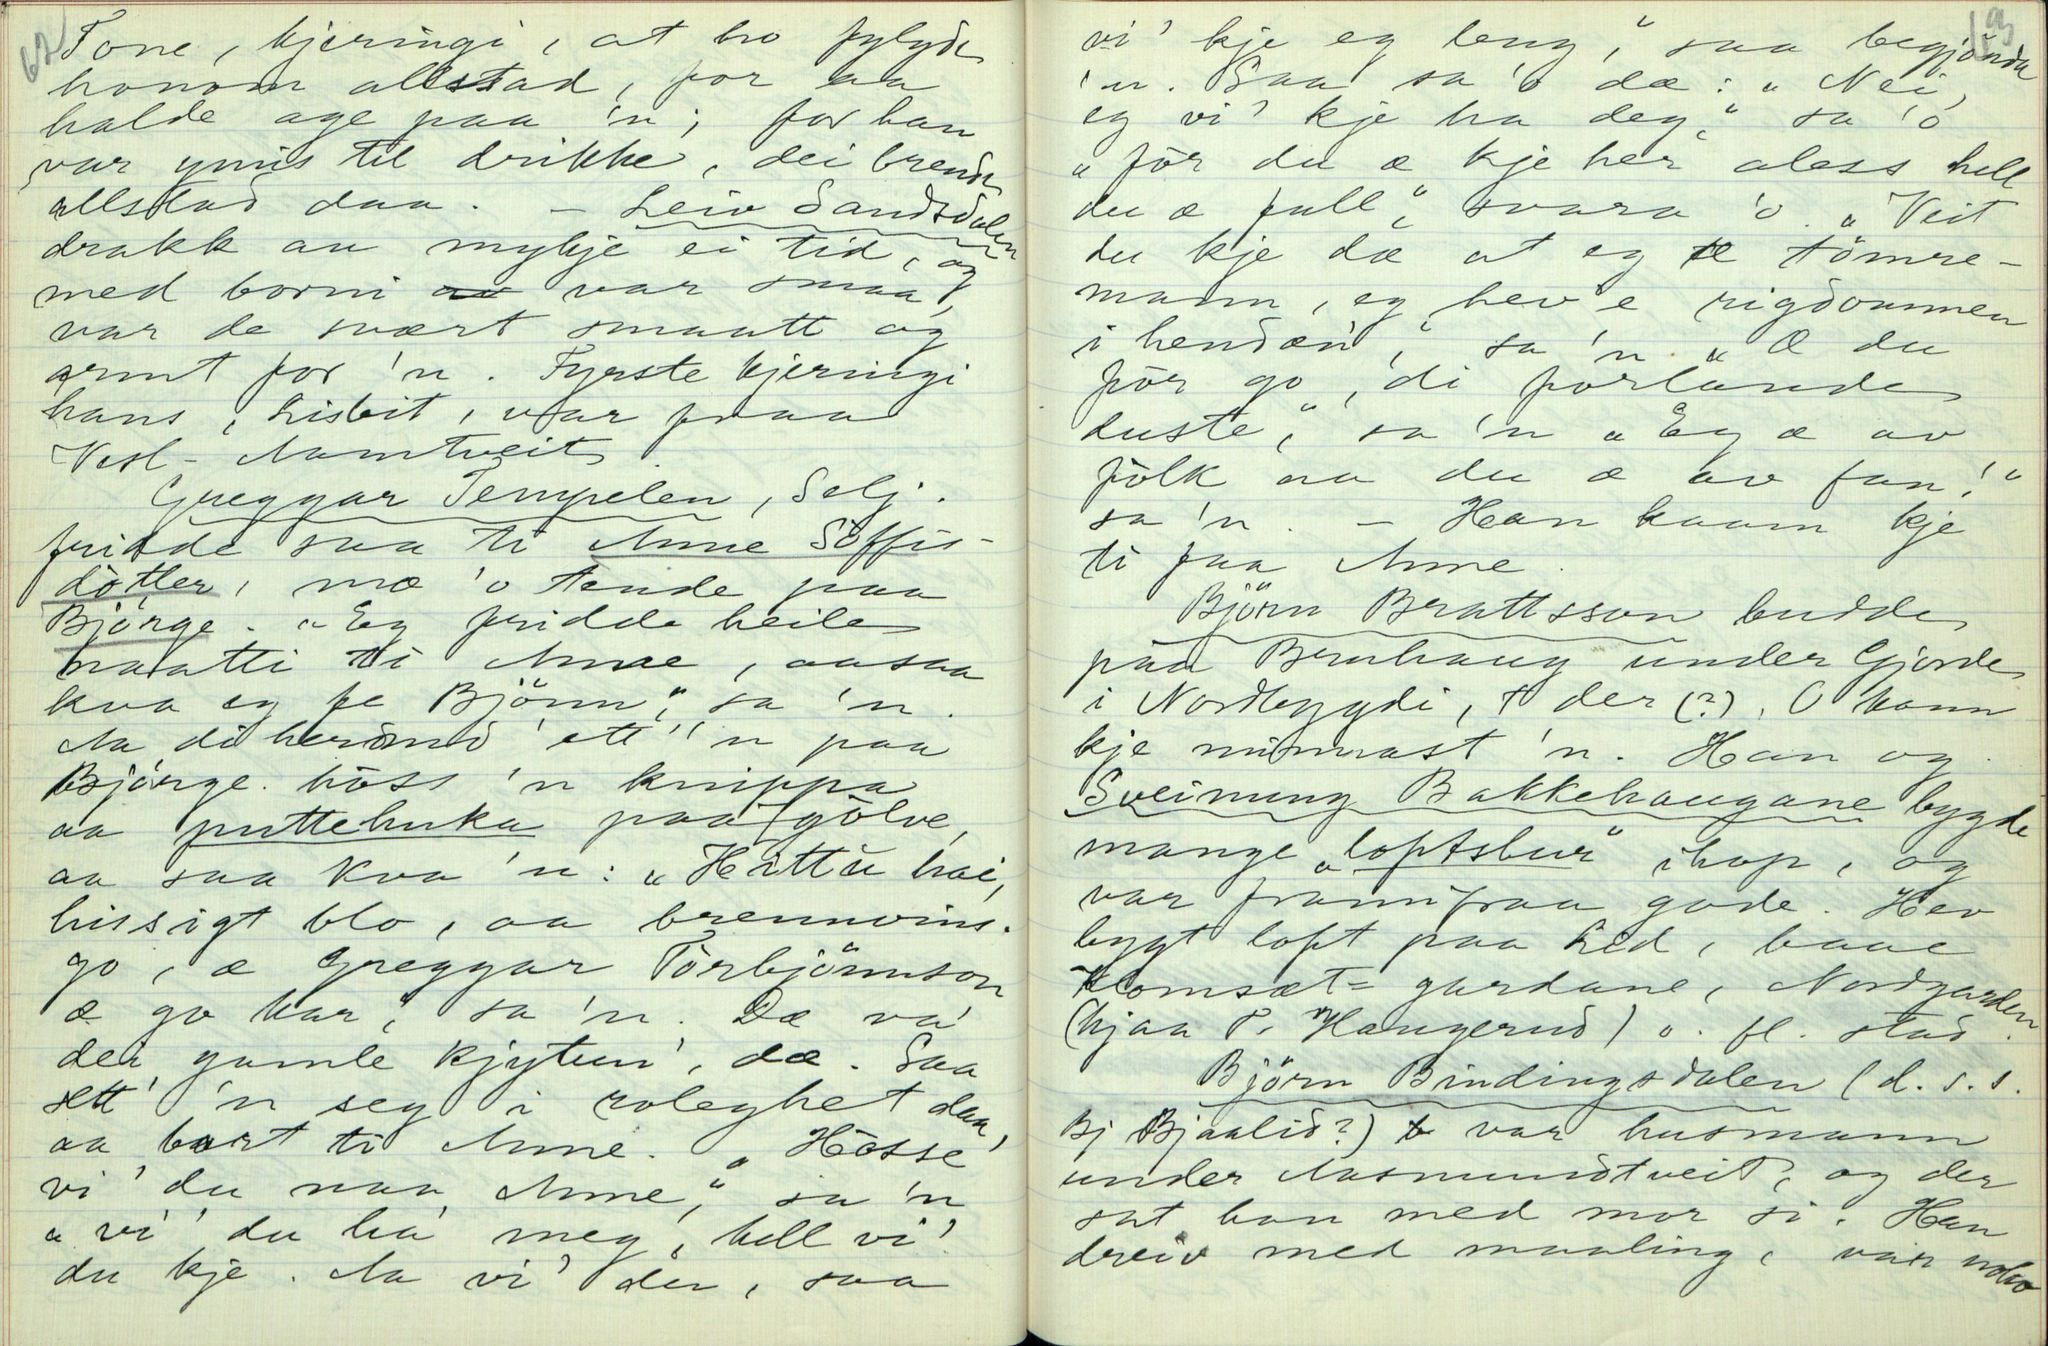 62
Tone, kjeringi, at ho fylgde
honom allstad, for aa
halde age paa 'n; for han
var ymis til drikke, dei brende
allstad daa. – Leiv Sandsdalen
drakk au mykje ei tid, og
med borni var smaa,
var de svært smaatt og
armt for 'n. Fyrste kjeringi
hans, Lisbit, var fraa
Vesl-Aamtveit.
Greggar Tempelen, Selj.
fridde saa ti Anne Söffis-
dötter, mæ 'o tende paa
Bjørge. "Eg fridde heile
naatti ti Anne, aasaa
kva eg fe Björnn," sa 'n.
Aa dihersmo' ett' 'n paa
Bjørge höss 'n knippa
aa puttehuka paa gölve,
aa saa kva 'n: "Hittu hai,
hissigt blo, aa brennvins-
go, æ Greggar Törbjönnson
æ go kar," sa 'n. Dæ va'
dei gamle kjyteri', dæ. Saa
sett' 'n seg i roleghet daa,
aa bort ti Anne. "Hösse
vi' du naa, Anne," sa 'n
"vi' du ha' meg, hell vi'
du kje. Aa vi' du, saa
vi' kje eg leng," saa begjönda
'n. Saa sa 'o dæ: "Nei,
eg vi' kje ha deg," sa 'o
"för du æ kje her aless hell
du æ full," svara 'o. "Veit
du kje dæ at eg æ tömre-
mann, eg hev'e rigdommen
i hendæn," sa 'n. "Æ du
för go, di förlande
duste," sa 'n "Eg æ av
fölk aa du æ av fan!"
sa 'n. – Han kaam kje
ti faa Anne.
Björn Brattsson budde
paa Bruhaug under Gjorde
i Nordbygdi, † der (?). O kann
kje minnast 'n. Han og
Sveinung Bakkehaugane bygde
mange "loftsbur" ihop, og
var framifraa gode. Hev
bygt loft paa Lid, baae
Klomsæt-gardane, Nordgarden
(hjaa T. Haugerud) o. fl. stad.
Björn Bindingsdalen (d. s. s.
Bj Bjaalid?) var husmann
under Aasmundtveit, og der
sat han med mor si. Han
dreiv med maaling, var noko